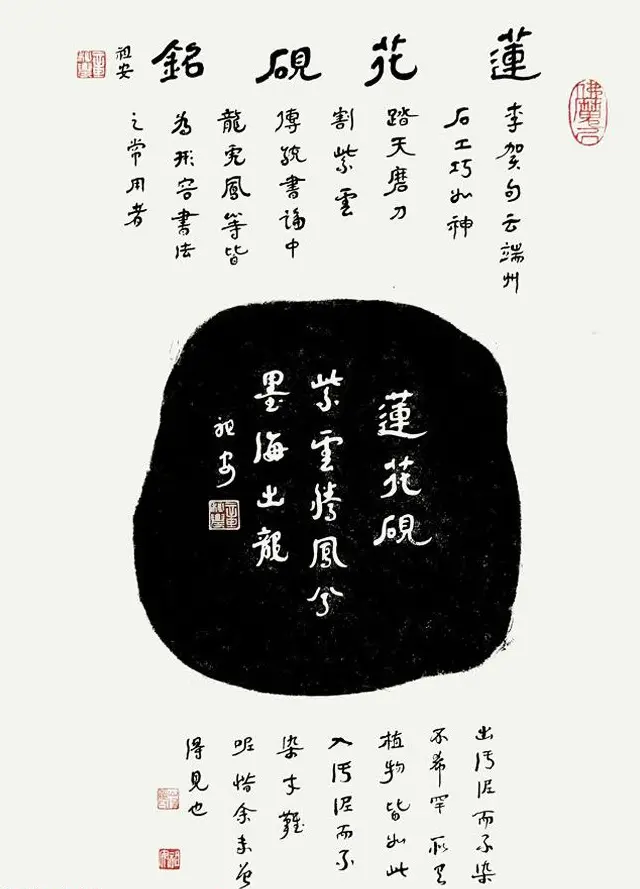 蓮花硯銘
祖安
李賀句云端州
石工巧如神
踏天磨刀
割紫雲
傳統書論中
龍虎鳳等皆
為形容書法
之常用者
蓮花硯
紫雲騰鳳兮
墨海出龍
祖安
出污泥而不染
不希罕所有
植物皆如此
入污泥而不
染才難
呢惜余未曾
得見也